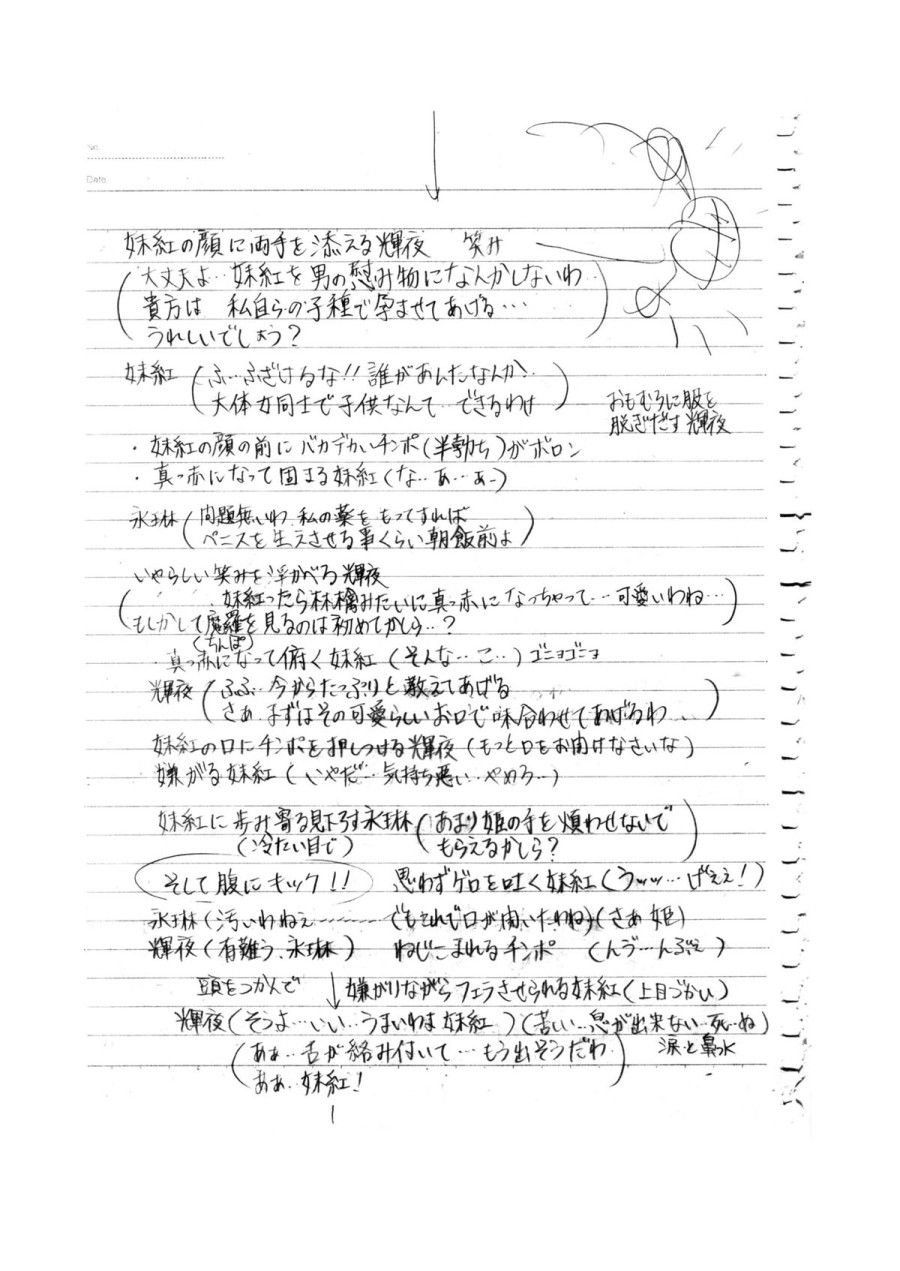 No.
Date
妹紅の顔に両手を添える輝夜 笑み
(大丈夫よ‥妹紅を男の慰み物になんかしないわ‥
貴方は 私自らの子種で孕ませてあげる…
うれしいでしょう?)
妹紅(ふ‥ふざけるな!!誰があんたなんか‥
大体女同士で子供なんて‥できるわけ)
おもむろに服を
脱ぎだす輝夜
・妹紅の顔の前にバカデカいチンポ(半勃ち)がボロン
・真っ赤になって固まる妹紅(な‥あ…あー)
永琳(問題無いわ 私の薬をもってすれば
ペニスを生えさせる事くらい朝飯前よ)
いやらしい笑みを浮かべる輝夜
(妹紅ったら林檎みたいに真っ赤になっちゃって…可愛いわね…
もしかして魔羅を見るのは初めてかしら‥?)
(ちんぽ)
・真っ赤になって俯く妹紅(そんな‥こ‥)ゴニョゴニョ
輝夜(ふふ‥今からたっぷりと教えてあげる
さぁ まずはその可愛らしいお口で味合わせてあげるわ‥)
妹紅の口にチンポを押しつける輝夜(もっと口をお開けなさいな)
嫌がる妹紅(いやだ…気持ち悪い‥やめろ‥)
妹紅に歩み寄る見下ろす永琳(あまり姫の手を煩わせないで
(冷たい目で) もらえるかしら?)
そして腹にキック!! 思わずゲロを吐く妹紅(うッッ…げぇぇ!)
永琳(汚いわねぇ………でもこれで口が開いたわね)(さあ姫)
輝夜(有難う、永琳) ねじこまれるチンポ (んヴ…んぶぇ)
頭をつかんで ↓ 嫌がりながらフェラさせられる妹紅(上目づかい)
輝夜(そうよ‥いい‥うまいわぁ妹紅)(苦しい…息が出来ない‥死‥ぬ)
(あぁ…舌が絡み付いて…もう出そうだわ 涙と鼻水
あぁ‥妹紅!)